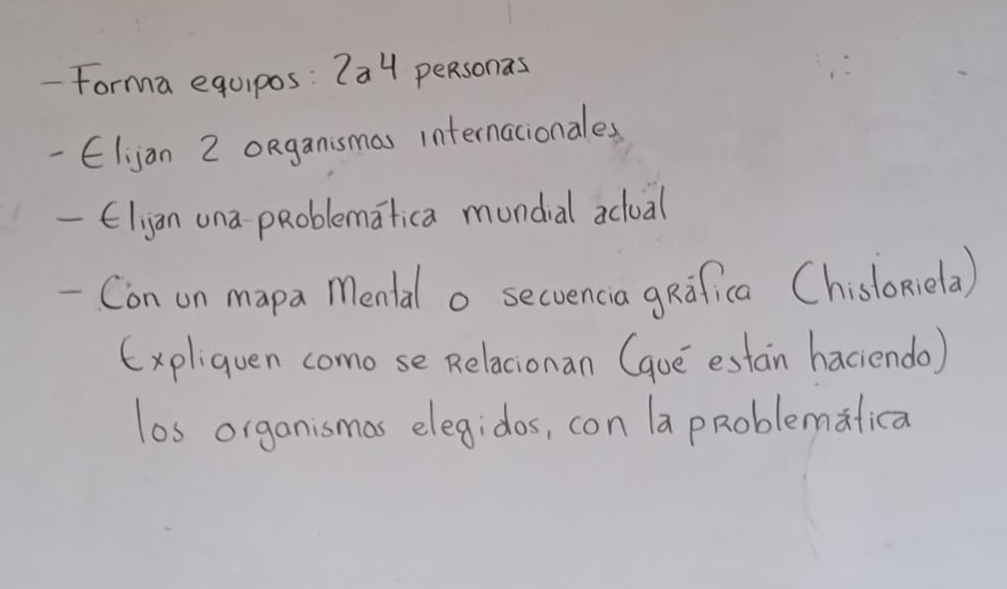 - Forma equipos: 2a4 personas
- Elijan 2 organismos internacionales
- Elijan una problemática mundial actual
- Con un mapa Mental o secuencia gráfica (historieta)
Expliquen como se Relacionan (qué están haciendo)
los organismos elegidos, con la problemática